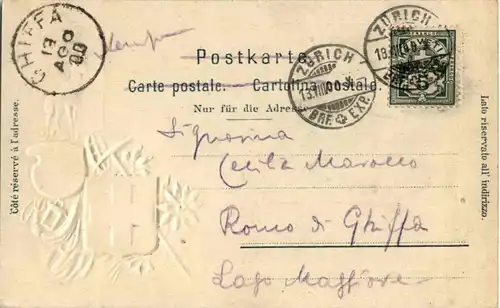 GHIFFA
13
AGO
00
ZÜRICH
BRF. EXP.
ZÜRICH
13.VIII.00
BRF. EXP.
FRANCO
Postkarte.
Carte postale. — Cartolina postale.
Nur für die Adresse
Côté réservé à l'adresse.
Lato riservato all' indirizzo.
Signorina
Cecilia Marocco
Ronco di Ghiffa
Lago Maggiore